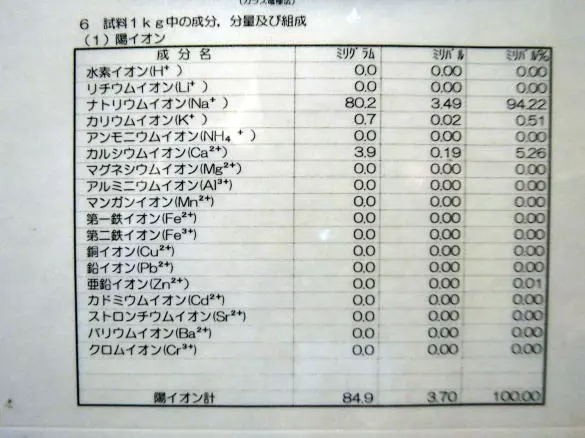 (ガラス電極法)
6 試料1kg中の成分，分量及び組成
(1) 陽イオン
成分名 ﾐﾘｸﾞﾗﾑ ﾐﾘﾊﾞﾙ ﾐﾘﾊﾞﾙ%
水素イオン(H⁺) 0.0 0.00 0.00
リチウムイオン(Li⁺) 0.0 0.00 0.00
ナトリウムイオン(Na⁺) 80.2 3.49 94.22
カリウムイオン(K⁺) 0.7 0.02 0.51
アンモニウムイオン(NH₄⁺) 0.0 0.00 0.00
カルシウムイオン(Ca²⁺) 3.9 0.19 5.26
マグネシウムイオン(Mg²⁺) 0.0 0.00 0.00
アルミニウムイオン(Al³⁺) 0.0 0.00 0.00
マンガンイオン(Mn²⁺) 0.0 0.00 0.00
第一鉄イオン(Fe²⁺) 0.0 0.00 0.00
第二鉄イオン(Fe³⁺) 0.0 0.00 0.00
銅イオン(Cu²⁺) 0.0 0.00 0.00
鉛イオン(Pb²⁺) 0.0 0.00 0.00
亜鉛イオン(Zn²⁺) 0.0 0.00 0.01
カドミウムイオン(Cd²⁺) 0.0 0.00 0.00
ストロンチウムイオン(Sr²⁺) 0.0 0.00 0.00
バリウムイオン(Ba²⁺) 0.0 0.00 0.00
クロムイオン(Cr³⁺) 0.0 0.00 0.00
陽イオン計 84.9 3.70 100.00